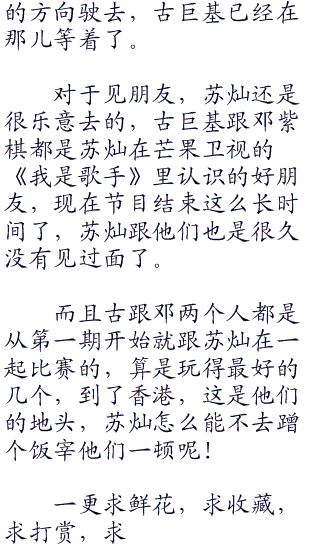 的方向驶去，古巨基已经在
那儿等着了。
对于见朋友，苏灿还是
很乐意去的，古巨基跟邓紫
棋都是苏灿在芒果卫视的
《我是歌手》里认识的好朋
友，现在节目结束这么长时
间了，苏灿跟他们也是很久
没有见过面了。
而且古跟邓两个人都是
从第一期开始就跟苏灿在一
起比赛的，算是玩得最好的
几个，到了香港，这是他们
的地头，苏灿怎么能不去蹭
个饭宰他们一顿呢！
一更求鲜花，求收藏，
求打赏，求